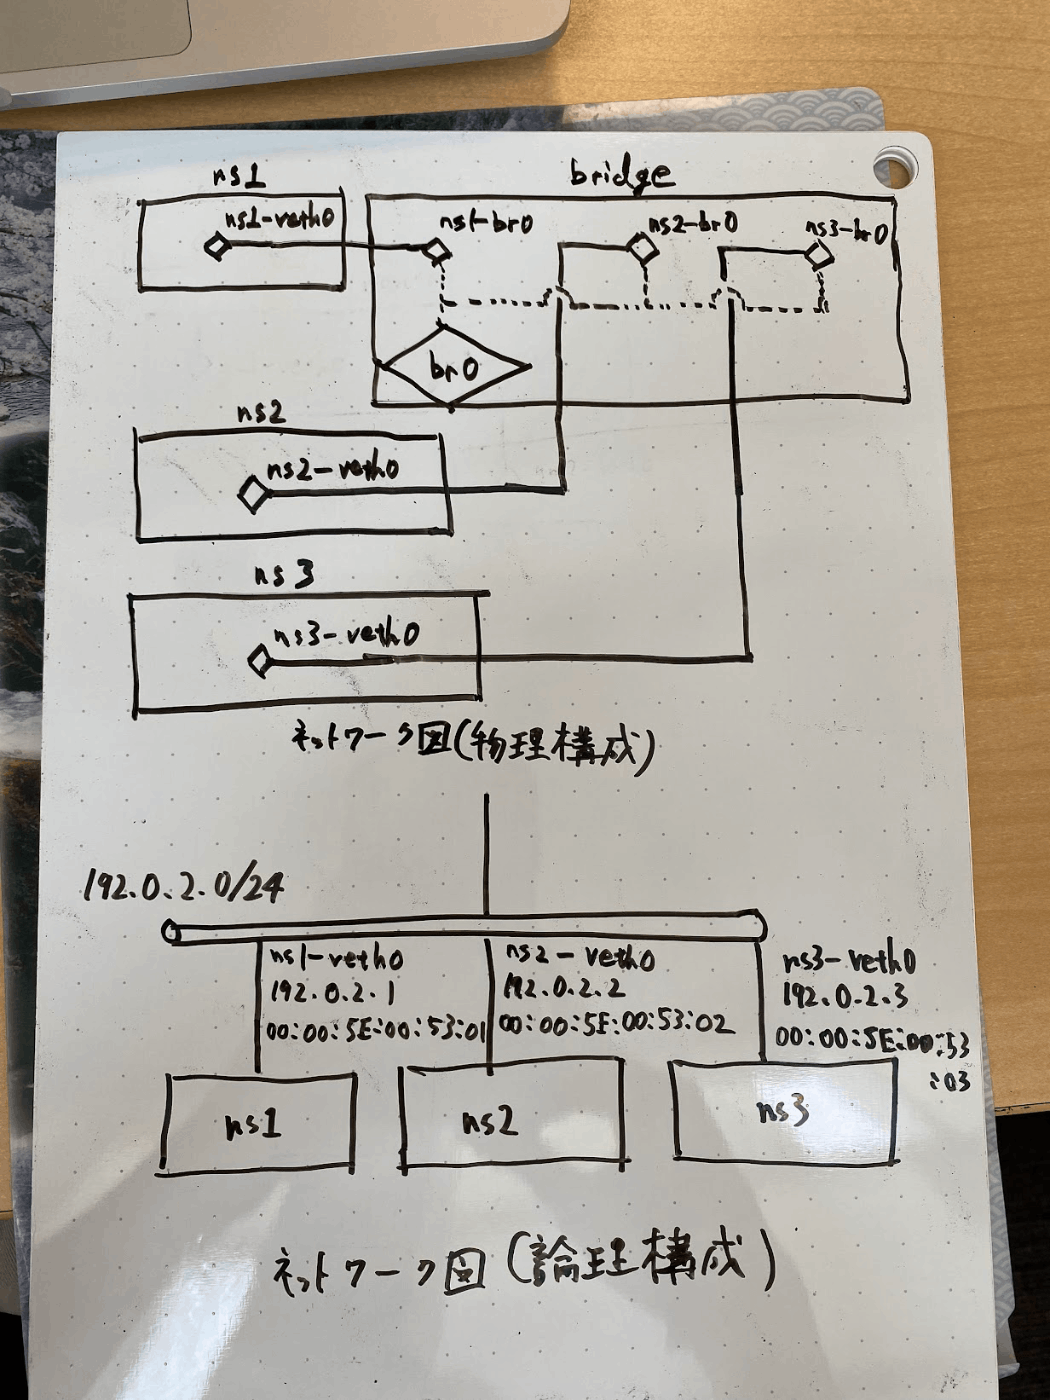 ns1
bridge
ns1-veth0
ns1-br0
ns2-br0
ns3-br0
br0
ns2
ns2-veth0
ns3
ns3-veth0
ネットワーク図(物理構成)
192.0.2.0/24
ns1-veth0
192.0.2.1
00:00:5E:00:53:01
ns2-veth0
192.0.2.2
00:00:5E:00:53:02
ns3-veth0
192.0.2.3
00:00:5E:00:53
:03
ns1
ns2
ns3
ネットワーク図(論理構成)